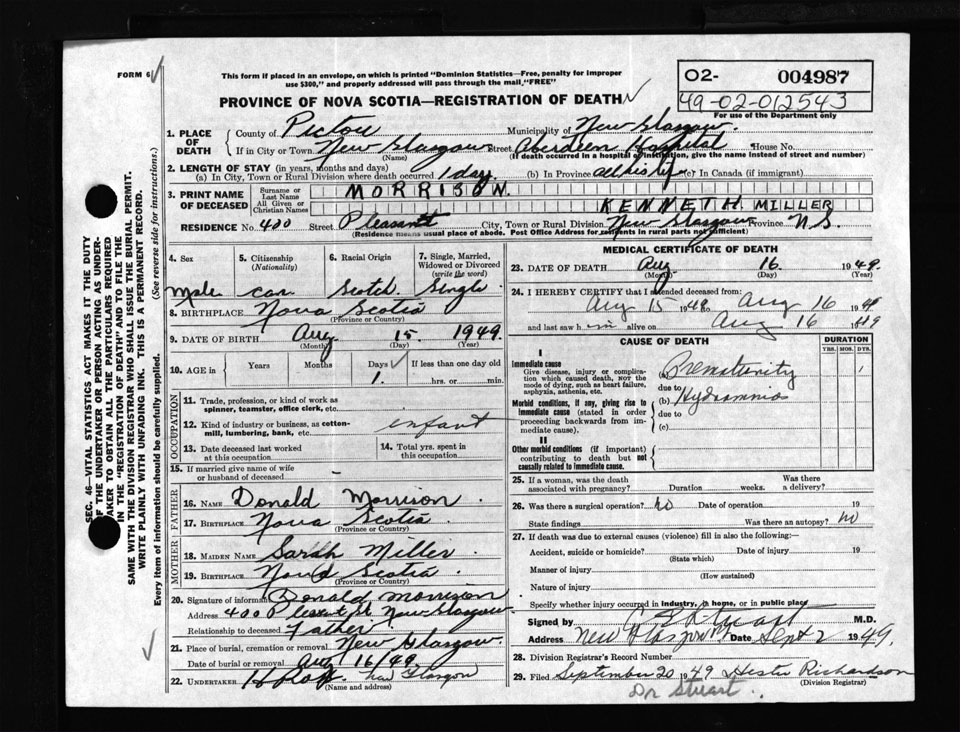 FORM 6
This form if placed in an envelope, on which is printed "Dominion Statistics—Free, penalty for improper
use $300," and properly addressed will pass through the mail "FREE"
PROVINCE OF NOVA SCOTIA—REGISTRATION OF DEATH
02- 004987
49-02-012543
For use of the Department only
1. PLACE OF DEATH
County of Pictou Municipality of New Glasgow.
If in City or Town New Glasgow Street Aberdeen Hospital House No.
(Name) (If death occurred in a hospital or institution, give the name instead of street and number)
2. LENGTH OF STAY (in years, months and days)
(a) In City, Town or Rural Division where death occurred 1 day. (b) In Province all his life (c) In Canada (if immigrant)
3. PRINT NAME OF DECEASED
Surname or Last Name MORRISON.
All Given or Christian Names KENNETH. MILLER
RESIDENCE No. 400 Street Pleasant City, Town or Rural Division New Glasgow Province N.S.
(Residence means usual place of abode. Post Office Address for residents in rural parts not sufficient)
4. Sex
Male
5. Citizenship (Nationality)
Can
6. Racial Origin
Scotch
7. Single, Married, Widowed or Divorced (write the word)
Single
8. BIRTHPLACE Nova Scotia
(Province or Country)
9. DATE OF BIRTH Aug 15 1949.
(Month) (Day) (Year)
10. AGE in Years Months Days If less than one day old
1. hrs. or min.
OCCUPATION
11. Trade, profession, or kind of work as spinner, teamster, office clerk, etc.
12. Kind of industry or business, as cotton-mill, lumbering, bank, etc. infant
13. Date deceased last worked at this occupation
14. Total yrs. spent in this occupation
15. If married give name of wife or husband of deceased
FATHER
16. NAME Donald Morrison.
17. BIRTHPLACE Nova Scotia.
(Province or Country)
MOTHER
18. MAIDEN NAME Sarah Miller
19. BIRTHPLACE Nova Scotia.
(Province or Country)
20. Signature of informant Donald Morrison
Address 400 Pleasant St. New Glasgow
Relationship to deceased Father
21. Place of burial, cremation or removal New Glasgow.
Date of burial or removal Aug 16/49.
22. UNDERTAKER New Glasgow
(Name and address)
MEDICAL CERTIFICATE OF DEATH
23. DATE OF DEATH Aug 16. 1949.
(Month) (Day)
24. I HEREBY CERTIFY that I attended deceased from:
Aug 15 1949 to Aug 16 1949
and last saw him alive on Aug 16 1949
CAUSE OF DEATH
DURATION
YRS. MOS. DYS.
I
Immediate cause
Give disease, injury or complication which caused death, not the mode of dying, such as heart failure, asphyxia, asthenia, etc.
(a) Prematurity 1
due to
Morbid conditions, if any, giving rise to immediate cause (stated in order proceeding backwards from immediate cause).
(b) Hydramnios
due to
(c)
II
Other morbid conditions (if important) contributing to death but not causally related to immediate cause.
25. If a woman, was the death associated with pregnancy? Duration weeks. Was there a delivery?
26. Was there a surgical operation? No Date of operation 19
State findings Was there an autopsy? No
27. If death was due to external causes (violence) fill in also the following:—
Accident, suicide or homicide? Date of injury 19
(State which)
Manner of injury
(How sustained)
Nature of injury
Specify whether injury occurred in industry, in home, or in public place
Signed by Stuart M.D.
Address New Glasgow Date Sept 2 1949.
28. Division Registrar's Record Number
29. Filed September 20 1949 Hester Richardson
(Division Registrar)
Dr Stuart.
SEC. 46—VITAL STATISTICS ACT MAKES IT THE DUTY
OF THE UNDERTAKER OR PERSON ACTING AS UNDER-
TAKER TO OBTAIN ALL THE PARTICULARS REQUIRED
IN THE "REGISTRATION OF DEATH" AND TO FILE THE
SAME WITH THE DIVISION REGISTRAR WHO SHALL ISSUE THE BURIAL PERMIT.
WRITE PLAINLY WITH UNFADING INK. THIS IS A PERMANENT RECORD.
Every item of information should be carefully supplied. (See reverse side for instructions.)